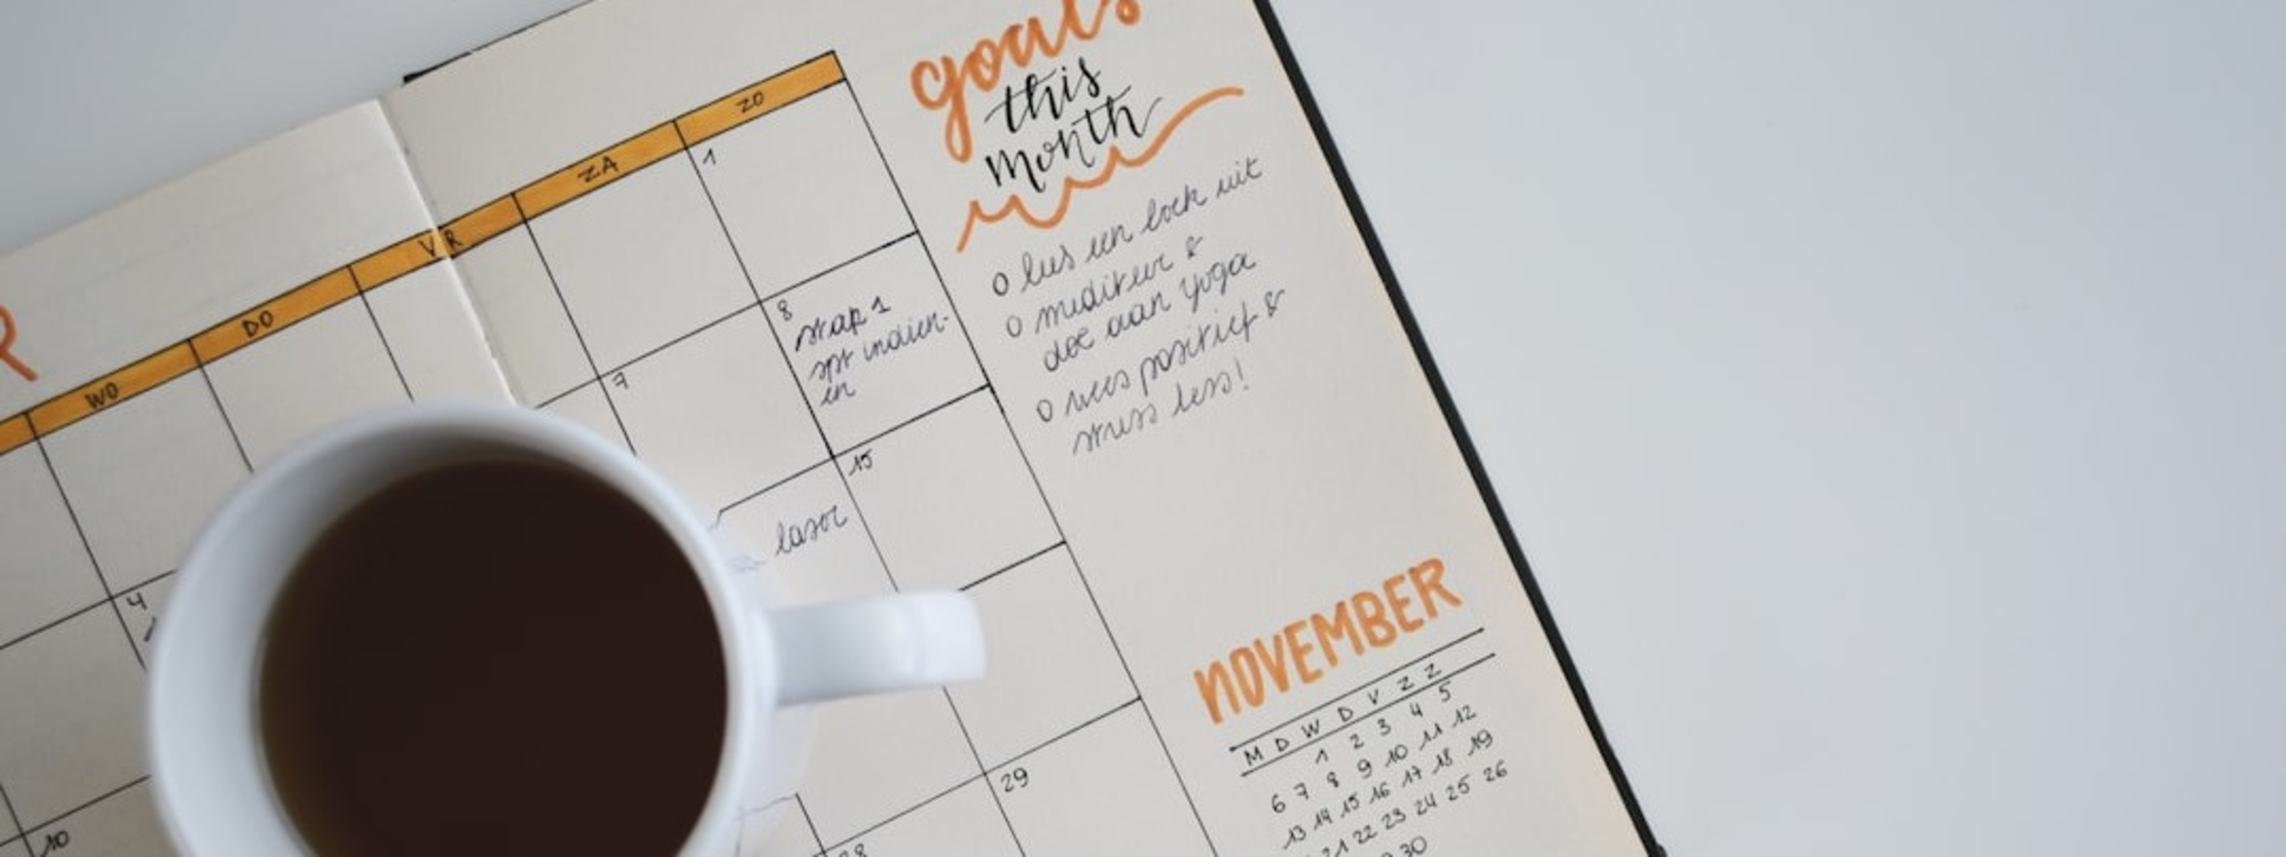 R
WO DO VR ZA ZO
1
7 8
stap 1
spt indien-
en
15
laser
4
10
28 29
goals
this
month
o lees een boek uit
o mediteer &
doe aan yoga
o wees positief &
stress less!
NOVEMBER
M D W D V Z Z
1 2 3 4 5
6 7 8 9 10 11 12
13 14 15 16 17 18 19
21 22 23 24 25 26
30